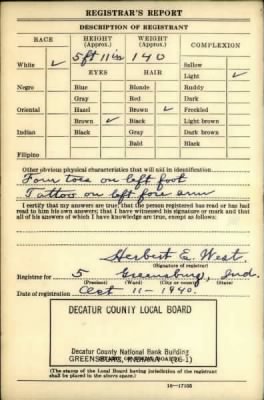 REGISTRAR'S REPORT
DESCRIPTION OF REGISTRANT
RACE
HEIGHT (Approx.)
WEIGHT (Approx.)
COMPLEXION
White ✓
5 ft 11 in
140
Sallow
EYES
HAIR
Light ✓
Negro
Blue
Blonde
Ruddy
Gray
Red
Dark
Oriental
Hazel
Brown ✓
Freckled
Brown ✓
Black
Light brown
Indian
Black
Gray
Dark brown
Bald
Black
Filipino
Other obvious physical characteristics that will aid in identification
Four toes on left foot
Tattoo on left fore arm
I certify that my answers are true; that the person registered has read or has had
read to him his own answers; that I have witnessed his signature or mark and that
all of his answers of which I have knowledge are true, except as follows:
Herbert E. West
(Signature of registrar)
Registrar for 5 Greensburg, Ind.
(Precinct) (Ward) (City or county) (State)
Date of registration Oct 11 - 1940.
DECATUR COUNTY LOCAL BOARD
Decatur County National Bank Building
GREENSBURG, INDIANA (16-1)
(The stamp of the Local Board having jurisdiction of the registrant
shall be placed in the above space.)
16—17105